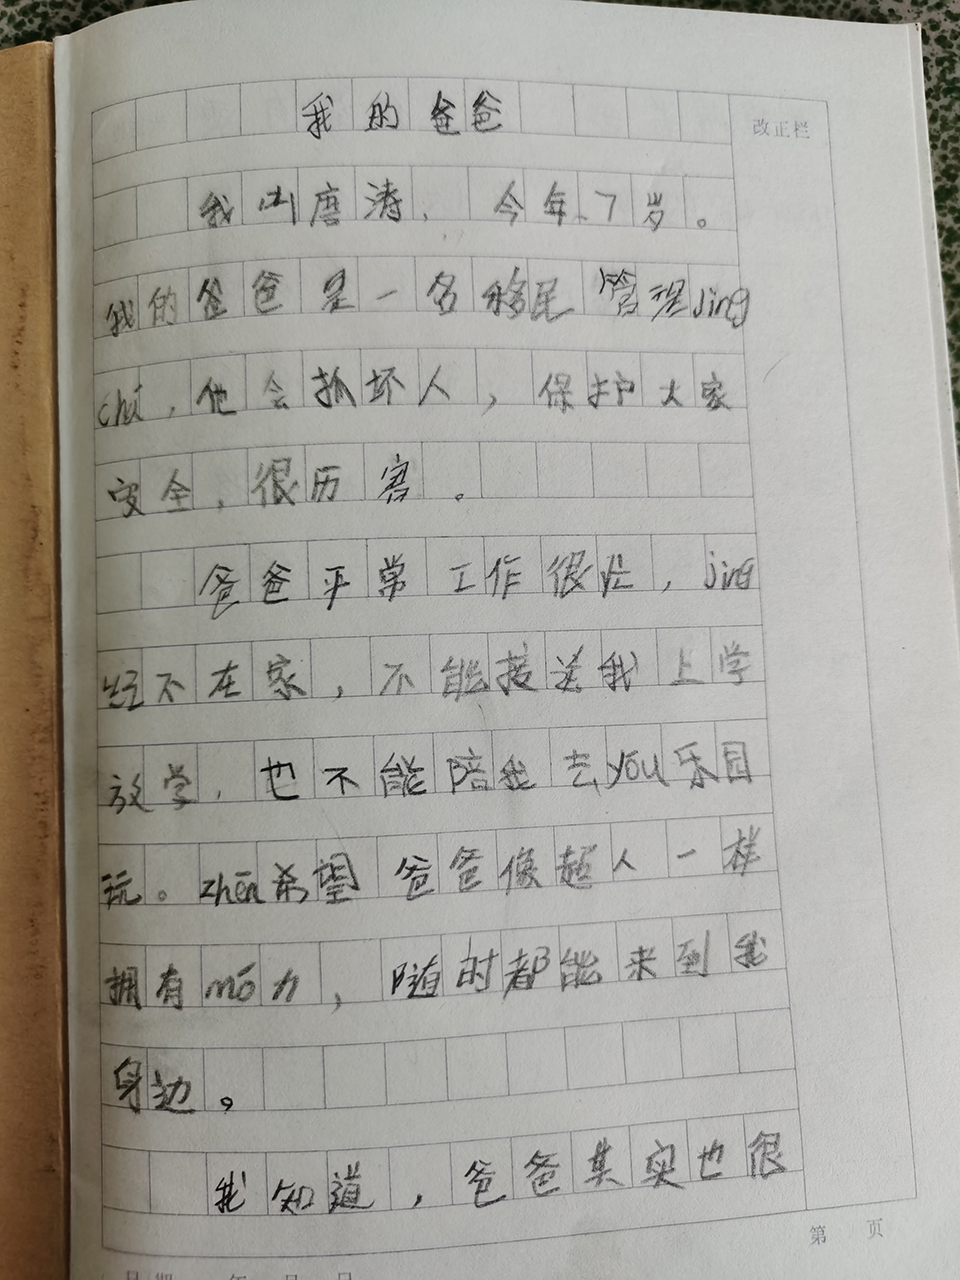 我的爸爸
改正栏
我叫唐涛，今年7岁。
我的爸爸是一名移民管理jǐng
chá，他会抓坏人，保护大家
安全，很历害。
爸爸平常工作很忙，jīng
经不在家，不能接送我上学
放学，也不能陪我去yóu乐园
玩。zhēn希望爸爸像超人一样
拥有mó力，随时都能来到我
身边。
我知道，爸爸其实也很
第 页